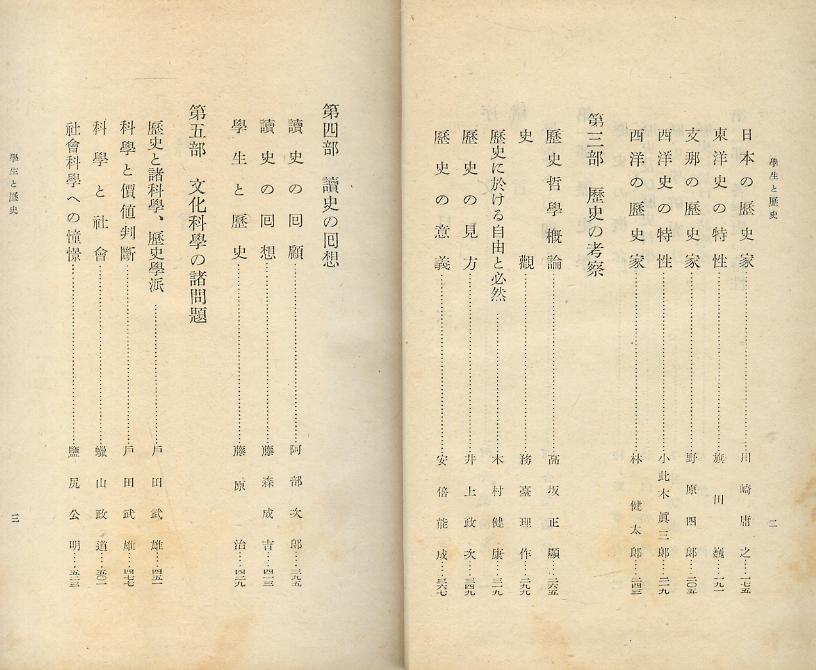 學生と歷史
二
日本の歷史家……川崎庸之…一七五
東洋史の特性……旗田巍…一九一
支那の歷史家……野原四郎…二〇五
西洋史の特性……小此木眞三郎…二一九
西洋の歷史家……林健太郎…二四三
第三部 歷史の考察
歷史哲學槪論……高坂正顯…二六五
史觀……務臺理作…二九三
歷史に於ける自由と必然……木村健康…三一九
歷史の見方……井上政次…三四九
歷史の意義……安倍能成…三六七
第四部 讀史の囘想
讀史の囘顧……阿部次郎…三九五
讀史の囘想……藤森成吉…四一三
學生と歷史……藤原治…四二九
第五部 文化科學の諸問題
歷史と諸科學、歷史學派……戶田武雄…四五一
科學と價値判斷……戶田武雄…四七七
科學と社會……蠟山政道…五〇一
社會科學への憧憬……鹽尻公明…五二三
學生と歷史
三